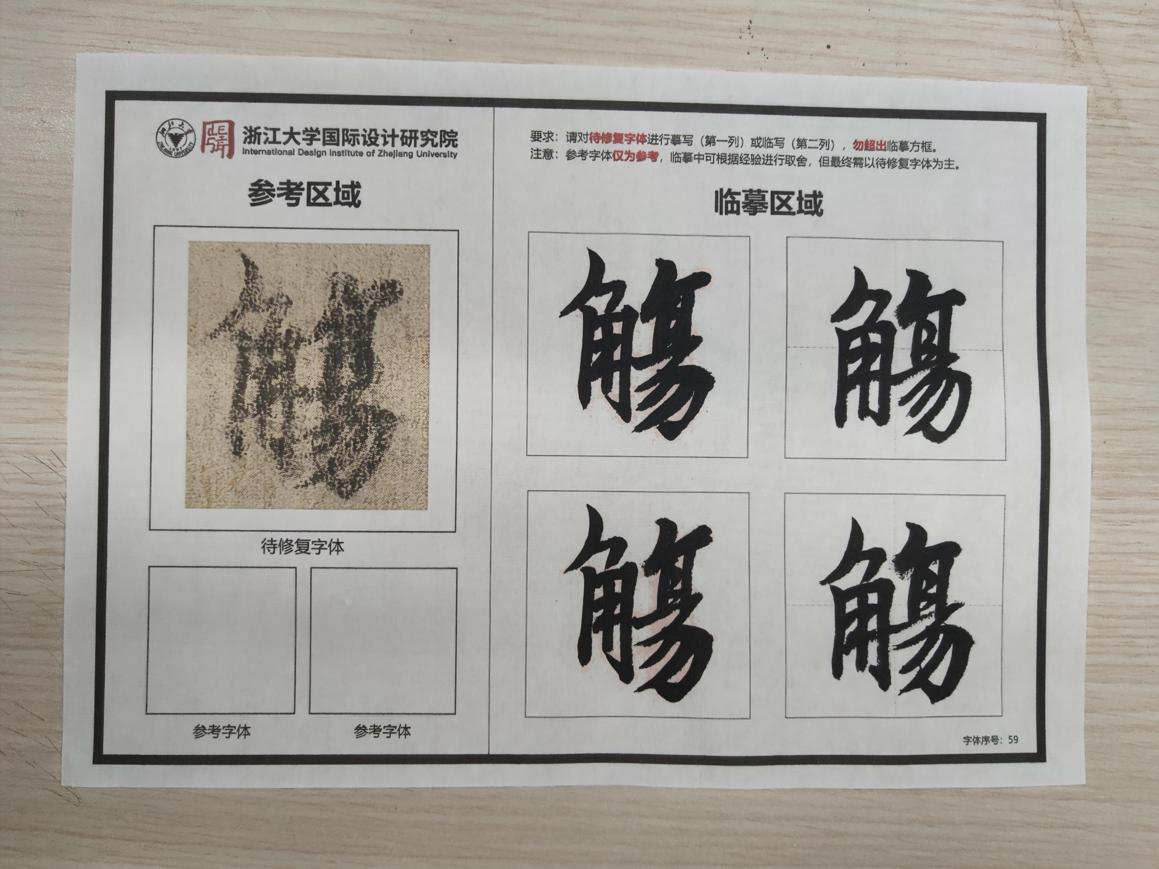 浙江大学国际设计研究院
International Design Institute of Zhejiang University
参考区域
待修复字体
参考字体
参考字体
要求：请对待修复字体进行摹写（第一列）或临写（第二列），勿超出临摹方框。
注意：参考字体仅为参考，临摹中可根据经验进行取舍，但最终需以待修复字体为主。
临摹区域
觴 觴
觴 觴
字体序号：59